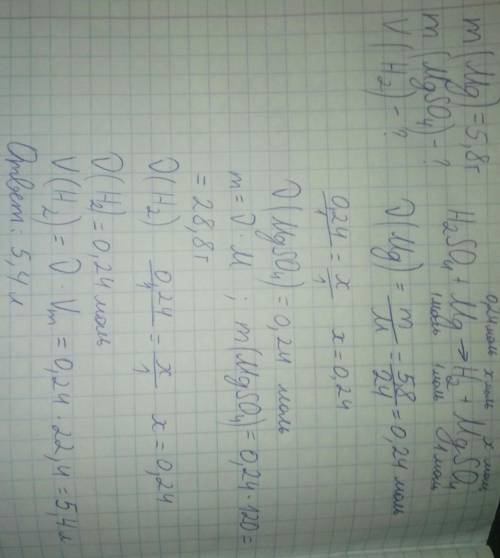 0,24 моль х моль х моль
m(Mg) = 5,8г H₂SO₄ + Mg → H₂ + MgSO₄
m(MgSO₄) - ? 1моль 1моль 1моль
V(H₂) - ? ν(Mg) = m/M = 5,8/24 = 0,24 моль
0,24/1 = x/1 x = 0,24
ν(MgSO₄) = 0,24 моль
m = ν · M ; m(MgSO₄) = 0,24 · 120 =
= 28,8г
ν(H₂) 0,24/1 = x/1 x = 0,24
ν(H₂) = 0,24 моль
V(H₂) = ν · Vm = 0,24 · 22,4 = 5,4 л
Ответ: 5,4 л